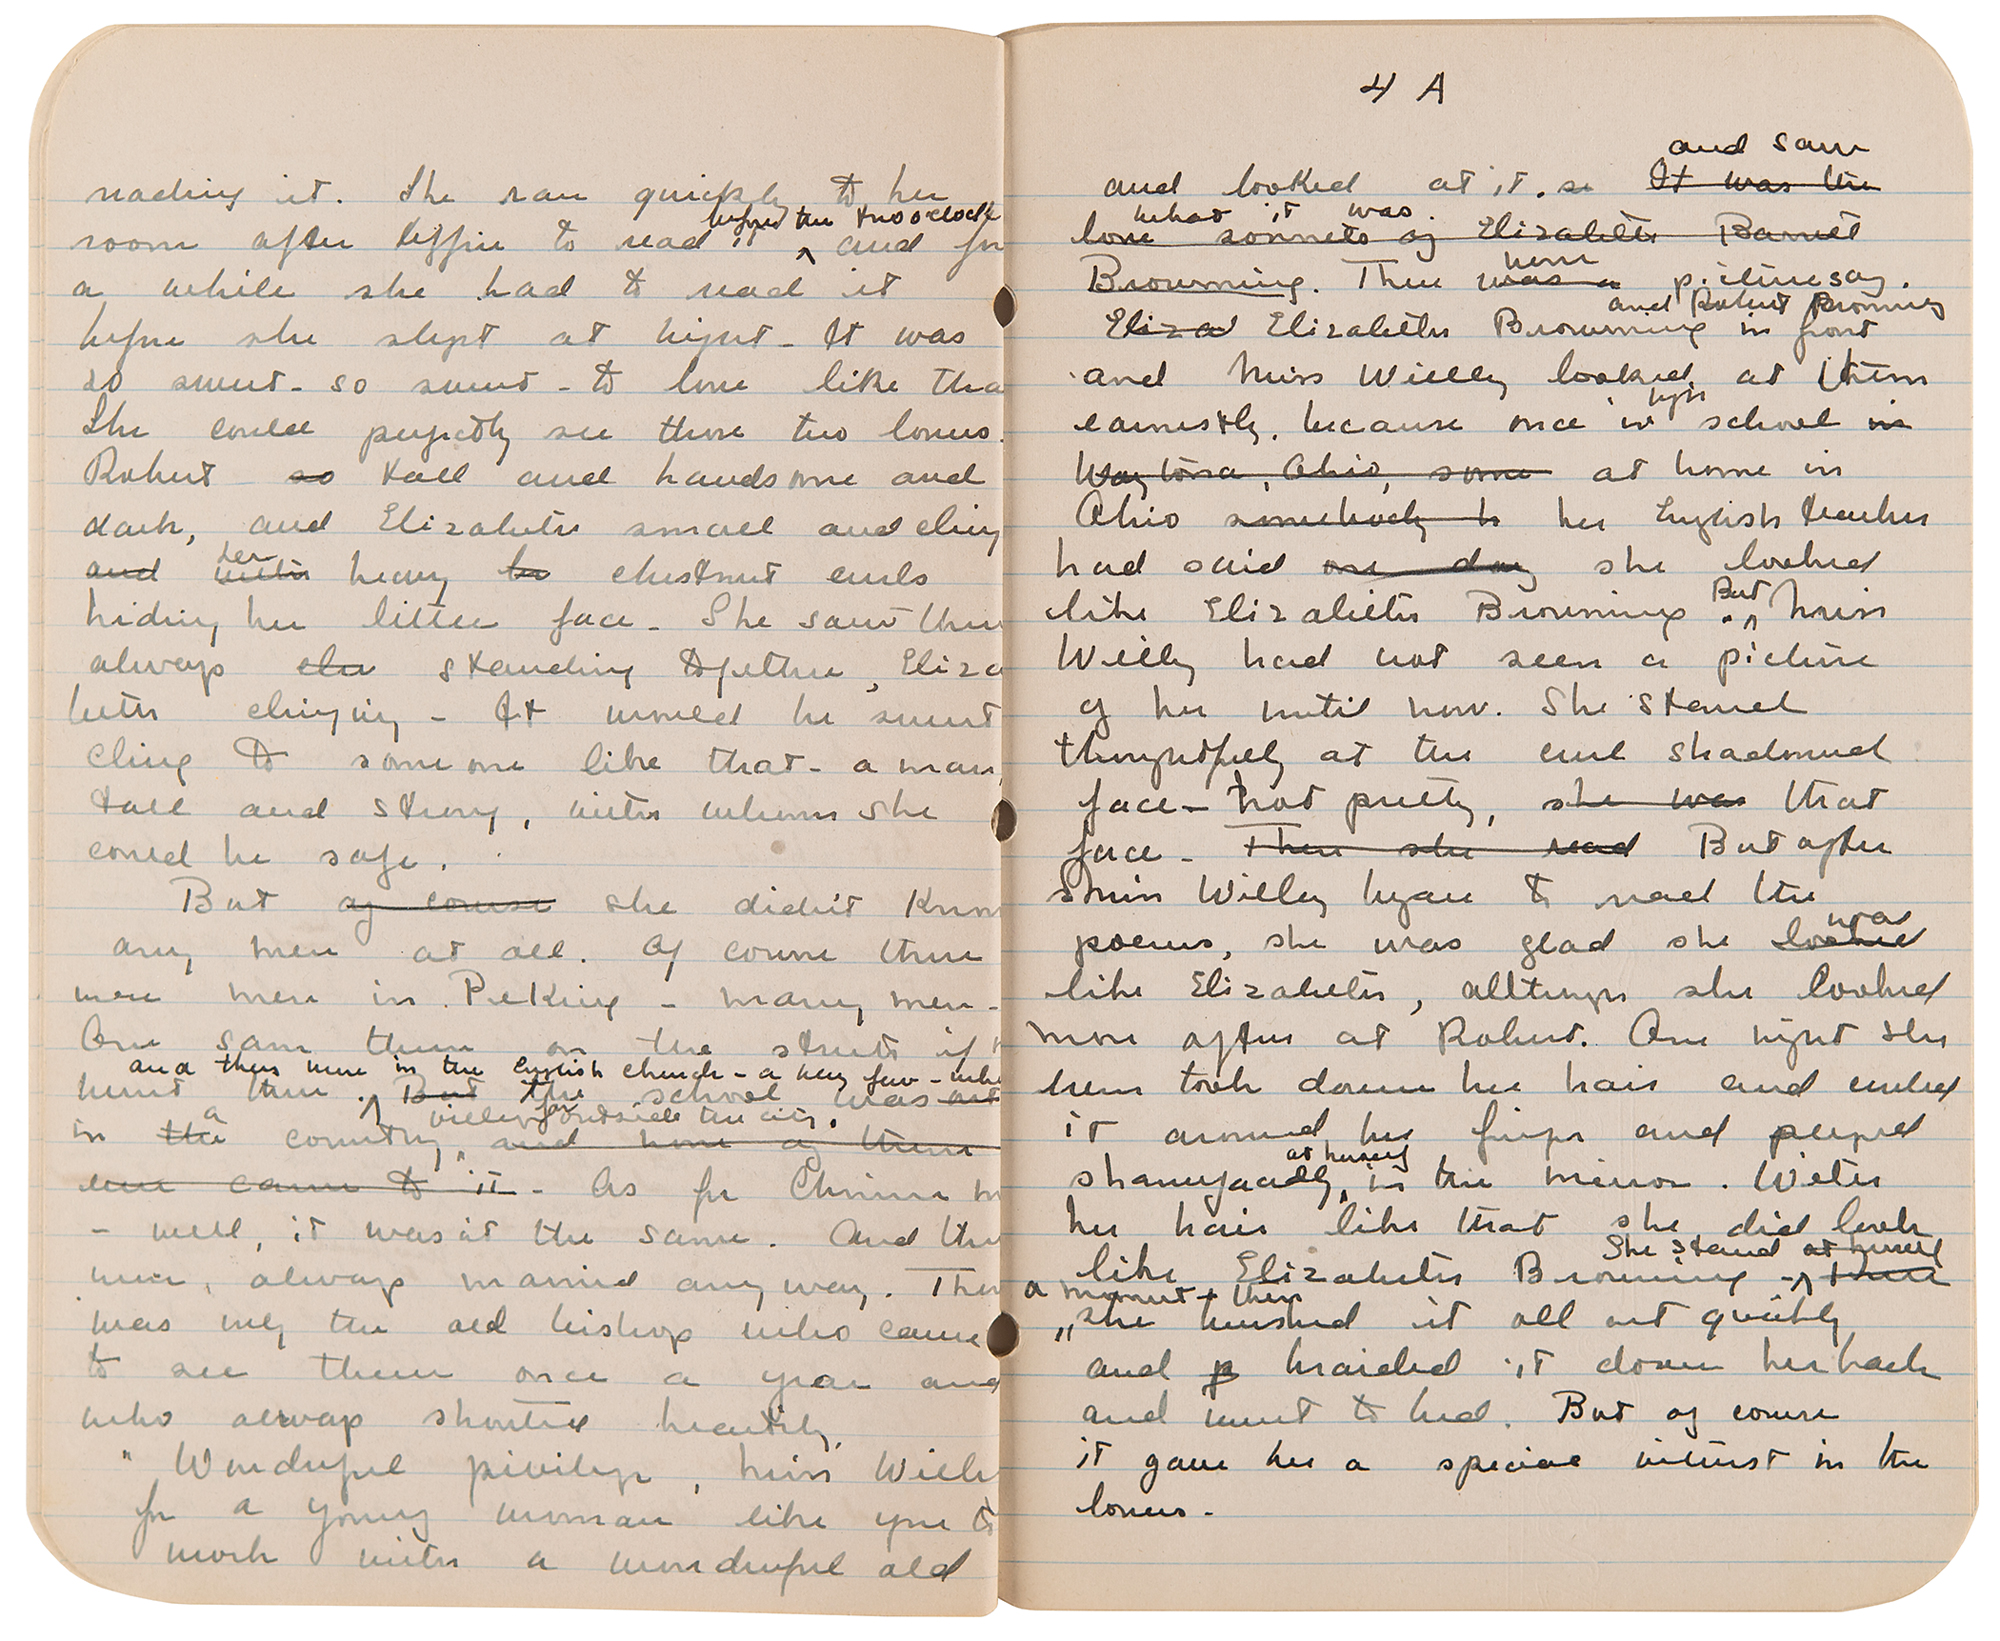 reading it. She ran quickly to her
before the two o'clock
room after tiffin to read it ^ and for
a while she had to read it
before she slept at night - It was
so sweet - so sweet - to love like tha
She could perfectly see those two lovers.
Robert so tall and handsome and
dark, and Elizabeth small and cling
her
and with heavy ha chestnut curls
hiding her little face - She saw them
always clu standing together, Eliza
beth clinging - It would be sweet
cling to someone like that - a man,
tall and strong, with whom she
could be safe.
But of course she didn't know
any men at all. Of course there
were men in Peking - many men -
One saw them on the streets if
and there were in the English church - a very few - who
went there. ^ But the school was out
a village far outside the city.
in the country, and none of them
ever came to it - As for Chinese m
- well, it wasn't the same. And they
were, always married anyway. Ther
was only the old bishop who came
to see them once a year and
who always shouted heartily,
" Wonderful privilege, Miss Wille
for a young woman like you to
work with a wonderful old
4 A
and saw
and looked at it. so It was the
what it was.
love sonnets of Elizabeth Barret
were
Browning. There was a pictures of.
and Robert Browning
Eliza Elizabeth Browning in front
and Miss Willey looked at them
high
earnestly, because once in school in
Ohio, some at home in
Ohio somebody h her English teacher
had said one day she looked
But
like Elizabeth Browning. ^ Miss
Willey had not seen a picture
of her until now. She stared
thoughtfully at the curl shadowed
face - Not pretty, she was that
face - Then she read But after
Miss Willey began to read the
was
poems, she was glad she looked
like Elizabeth, although she looked
more often at Robert. One night she
even took down her hair and curled
it around her fingers and peeped
at herself
shamefacedly, in the mirror. With
her hair like that she did look
She stared at herself
like Elizabeth Browning - ^ then
a moment - then
she brushed it all out quickly
and p braided it down her back
and went to bed. But of course
it gave her a special interest in the
lovers.